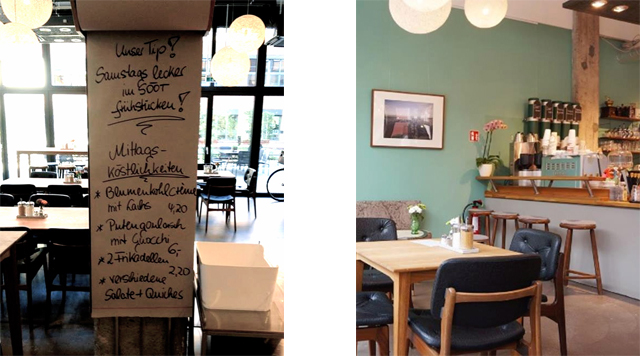 Unser Tip!
Samstags lecker
im SÖÖT
frühstücken!
Mittags-
köstlichkeiten
* Blumenkohlcreme
mit Lachs 4,20
* Putengoulasch
mit Gnocchi 6,-
* 2 Frikadellen 2,20
* verschiedene
Salate + Quiches